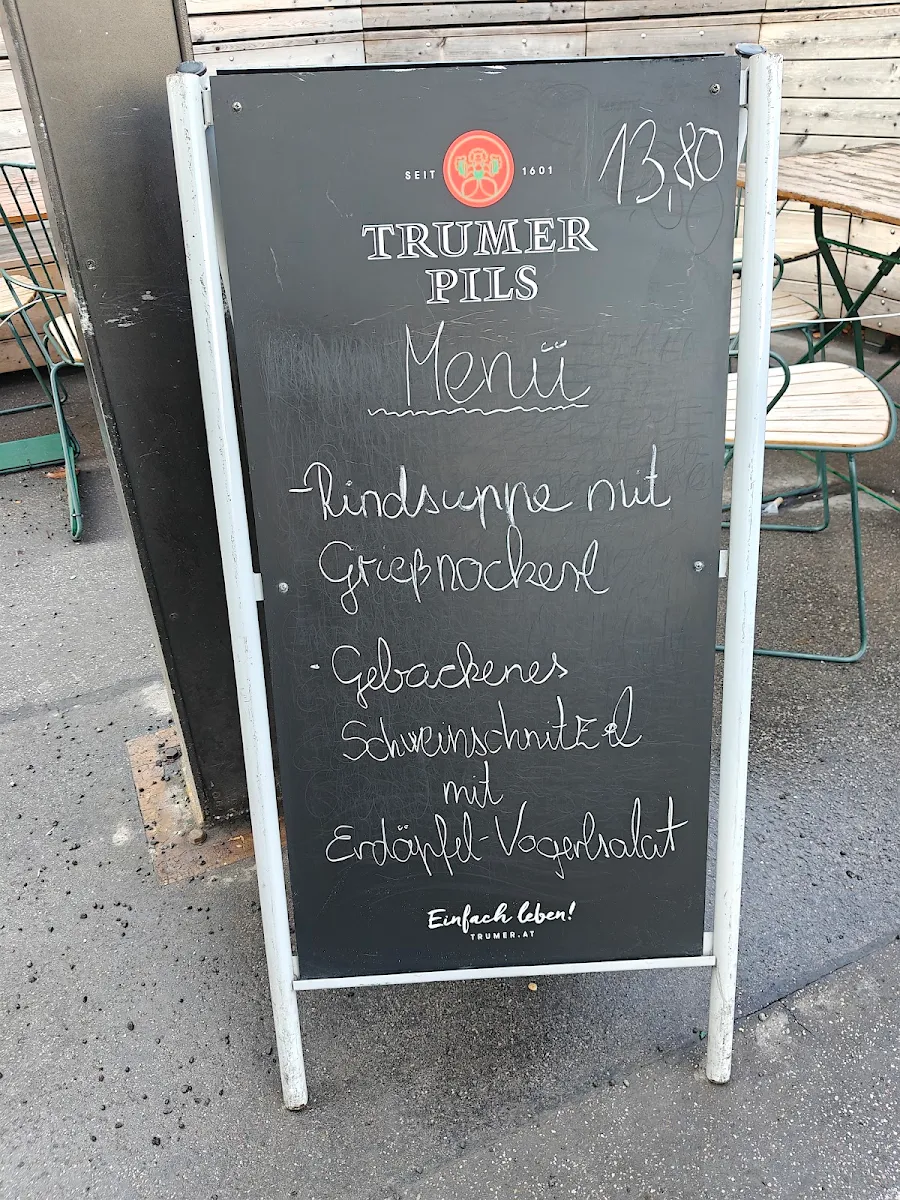 13,80
SEIT 1601
TRUMER
PILS
Menü
-Rindsuppe mit
Grießnockerl
- Gebackenes
Schweinschnitzel
mit
Erdäpfel-Vogerlsalat
Einfach leben!
TRUMER.AT